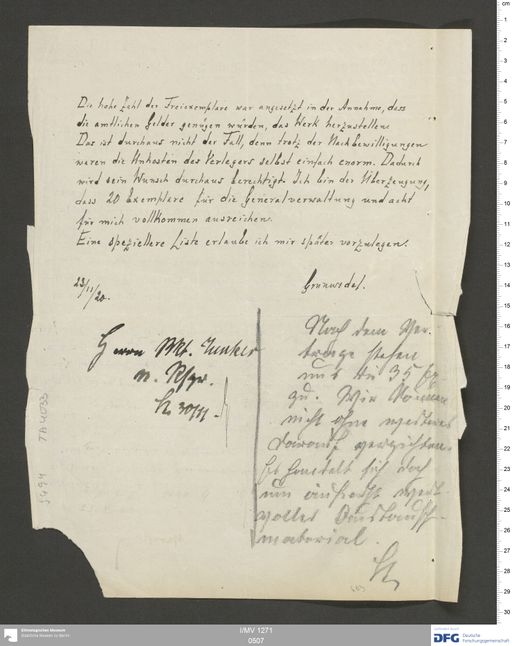 Die hohe Zahl der Freiexemplare war angesetzt in der Annahme, dass
die amtlichen Gelder genügen würden, das Werk herzustellen.
Das ist durchaus nicht der Fall, denn trotz der Nachbewilligungen
waren die Unkosten des Verlegers selbst einfach enorm. Dadurch
wird sein Wunsch durchaus berechtigt. Ich bin der Überzeugung,
dass 20 Exemplare für die Generalverwaltung und acht
für mich vollkommen ausreichen.
Eine speziellere Liste erlaube ich mir später vorzulegen.
23/11/20.
Grünwedel.
Herrn
30/11
Nach dem Ver-
trage stehen
uns die 35
zu. Wir können
nicht ohne weiteres
darauf verzichten.
Es handelt sich doch
um äußerst wert-
volles Tausch-
material.
J 494 TA 4033
I/MV 1271
0507
Ethnologisches Museum
Staatliche Museen zu Berlin
DFG Deutsche
Forschungsgemeinschaft